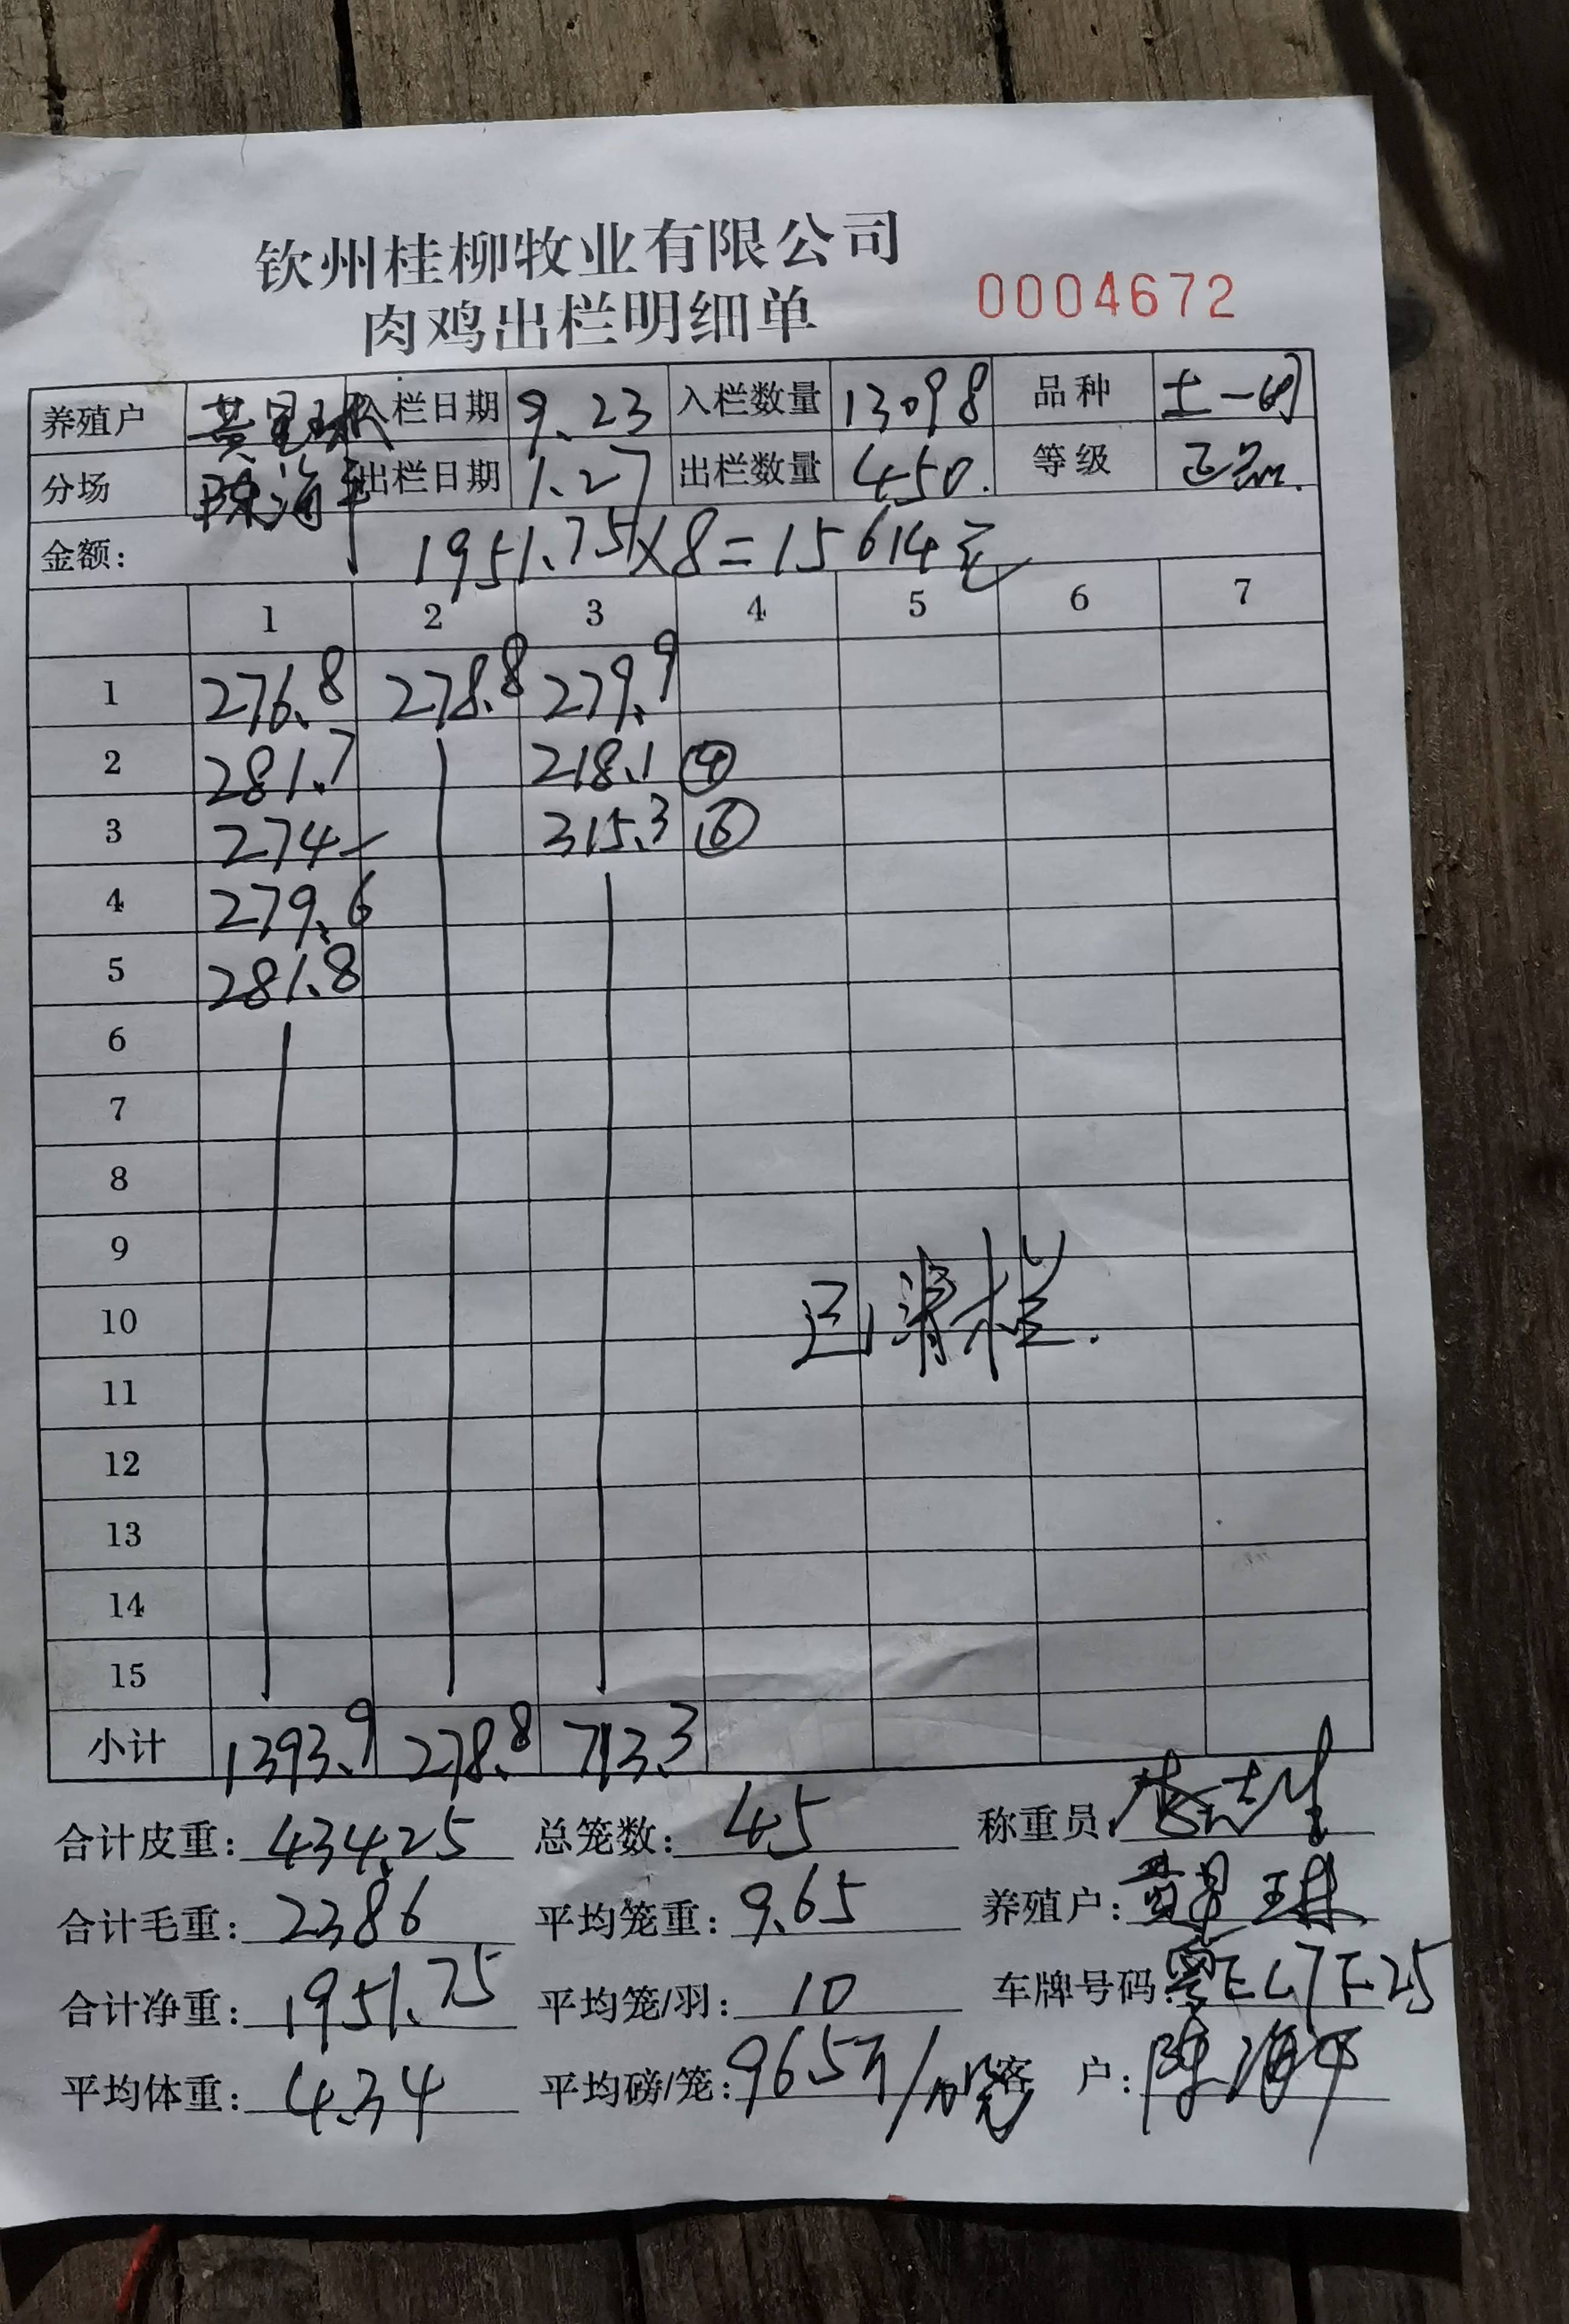 钦州桂柳牧业有限公司
肉鸡出栏明细单 0004672
养殖户 入栏日期 9.23 入栏数量 13098 品种 土一
分场 陈海平 出栏日期 1.27 出栏数量 450. 等级 正品.
金额: 1951.75×8=15614元
1 2 3 4 5 6 7
1 276.8 278.8 279.9
2 281.7 218.1 ④
3 274 315.3 ⑥
4 279.6
5 281.8
6
7
8
9
10 已清栏.
11
12
13
14
15
小计 1393.9 278.8 713.3
合计皮重: 434.25 总笼数: 45 称重员:
合计毛重: 2386 平均笼重: 9.65 养殖户:
合计净重: 1951.75 平均笼/羽: 10 车牌号码:
平均体重: 4.34 平均磅/笼: 9.65斤/ 客 户: 陈海平